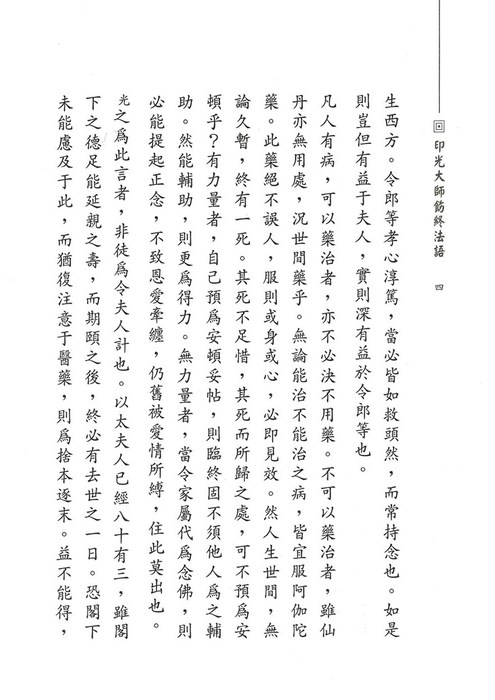 印光大師飭終法語　四
生西方。令郎等孝心淳篤，當必皆如救頭然，而常持念也。如是
則豈但有益于夫人，實則深有益於令郎等也。
凡人有病，可以藥治者，亦不必決不用藥。不可以藥治者，雖仙
丹亦無用處，況世間藥乎。無論能治不能治之病，皆宜服阿伽陀
藥。此藥絕不誤人，服則或身或心，必即見效。然人生世間，無
論久暫，終有一死。其死不足惜，其死而所歸之處，可不預為安
頓乎？有力量者，自己預為安頓妥帖，則臨終固不須他人為之輔
助。然能輔助，則更為得力。無力量者，當令家屬代為念佛，則
必能提起正念，不致恩愛牽纏，仍舊被愛情所縛，住此莫出也。
光之為此言者，非徒為令夫人計也。以太夫人已經八十有三，雖閣
下之德足能延親之壽，而期頤之後，終必有去世之一日。恐閣下
未能慮及于此，而猶復注意于醫藥，則為捨本逐末。益不能得，